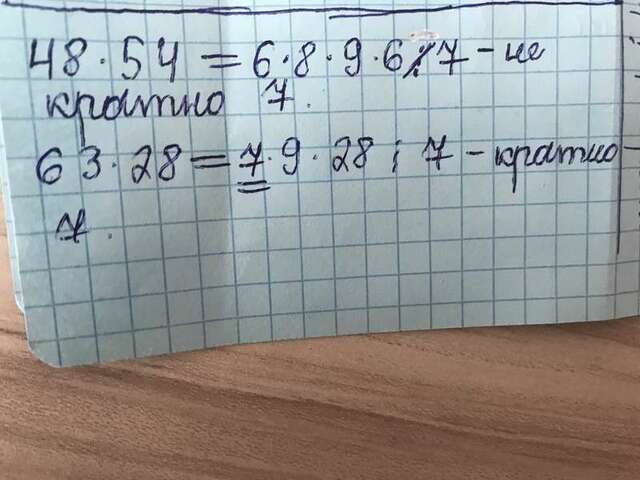 48·54=6·8·9·6⋮̸7-не
кратно 7.
63·28=7·9·28⋮7-кратно
7.